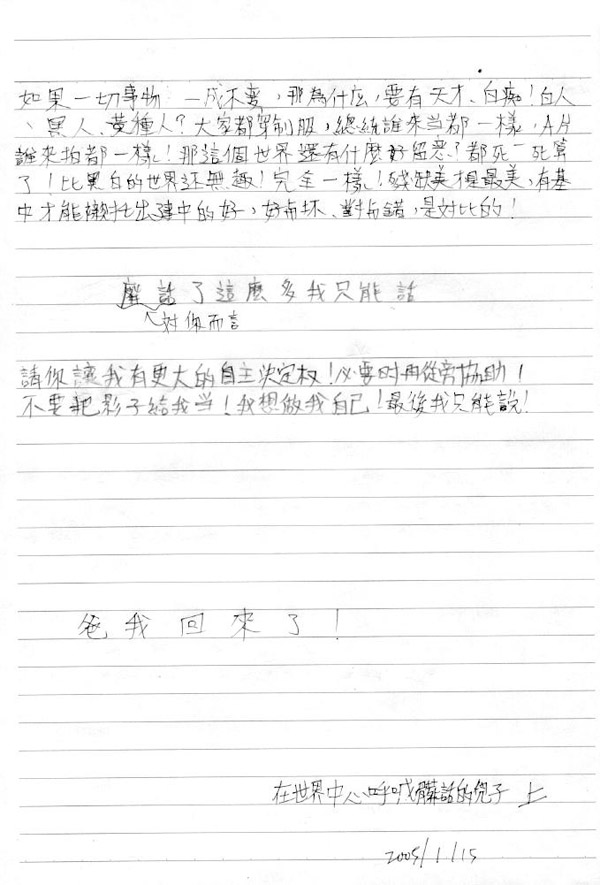 如果一切事物一成不変,那為什么,要有天才、白痴!白人
、黒人、黄種人?大家都穿制服,總統誰來当都一樣,A片
誰來拍都一樣!那這個世界還有什麼好留恋?都死一死算
了!比黑白的世界还無趣!完全一樣!殘缺美才是最美,有基
中才能襯托出建中的好,好与坏、對与錯,是对比的!
廢話了這麼多我只能話
對你而言
請你讓我有更大的自主決定权!必要时再從旁協助!
不要把影子給我当!我想做我自己!最後我只能說!
爸我回來了!
在世界中心呼喊髒話的兒子 上
2005/1/15